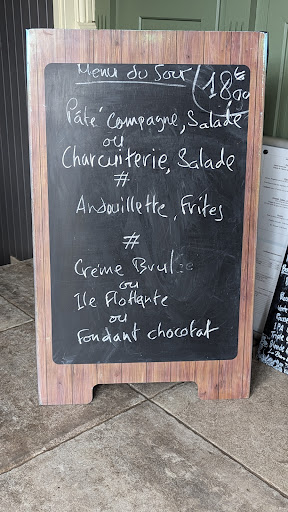 Menu du Jour 18€90
Pâté Compagne, Salade
ou
Charcuiterie, Salade
#
Andouillette, Frites
#
Crème Brulée
ou
Ile Flottante
ou
Fondant chocolat